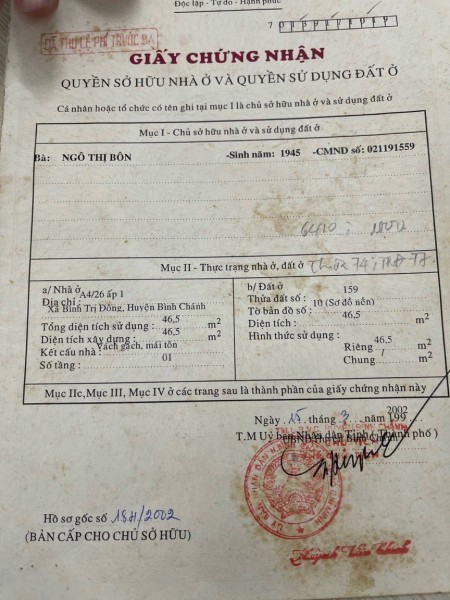 Độc lập - Tự do - Hạnh phúc
ĐÃ THU LỆ PHÍ TRƯỚC BẠ
GIẤY CHỨNG NHẬN
QUYỀN SỞ HỮU NHÀ Ở VÀ QUYỀN SỬ DỤNG ĐẤT Ở
Cá nhân hoặc tổ chức có tên ghi tại mục I là chủ sở hữu nhà ở và sử dụng đất ở
Mục I - Chủ sở hữu nhà ở và sử dụng đất ở
Bà: NGÔ THỊ BÔN -Sinh năm: 1945 -CMND số: 021191559
Mục II - Thực trạng nhà ở, đất ở Thửa 74,
a/ Nhà ở
Địa chỉ : A4/26 ấp 1
Xã Bình Trị Đông, Huyện Bình Chánh
Tổng diện tích sử dụng : 46,5 m2
Diện tích xây dựng : 46,5 m2
Kết cấu nhà : Vách gạch, mái tôn
Số tầng : 01
b/ Đất ở
Thửa đất số : 159
Tờ bản đồ số : 10 (Sơ đồ nền)
Diện tích : 46,5 m2
Hình thức sử dụng :
Riêng : 46,5 m2
Chung : / m2
Mục IIc, Mục III, Mục IV ở các trang sau là thành phần của giấy chứng nhận này
Ngày 15 tháng 3 năm 199 2002
T.M Uỷ ban Nhân dân Tỉnh ( Thành phố )
Hồ sơ gốc số 1811/2002
(BẢN CẤP CHO CHỦ SỞ HỮU)